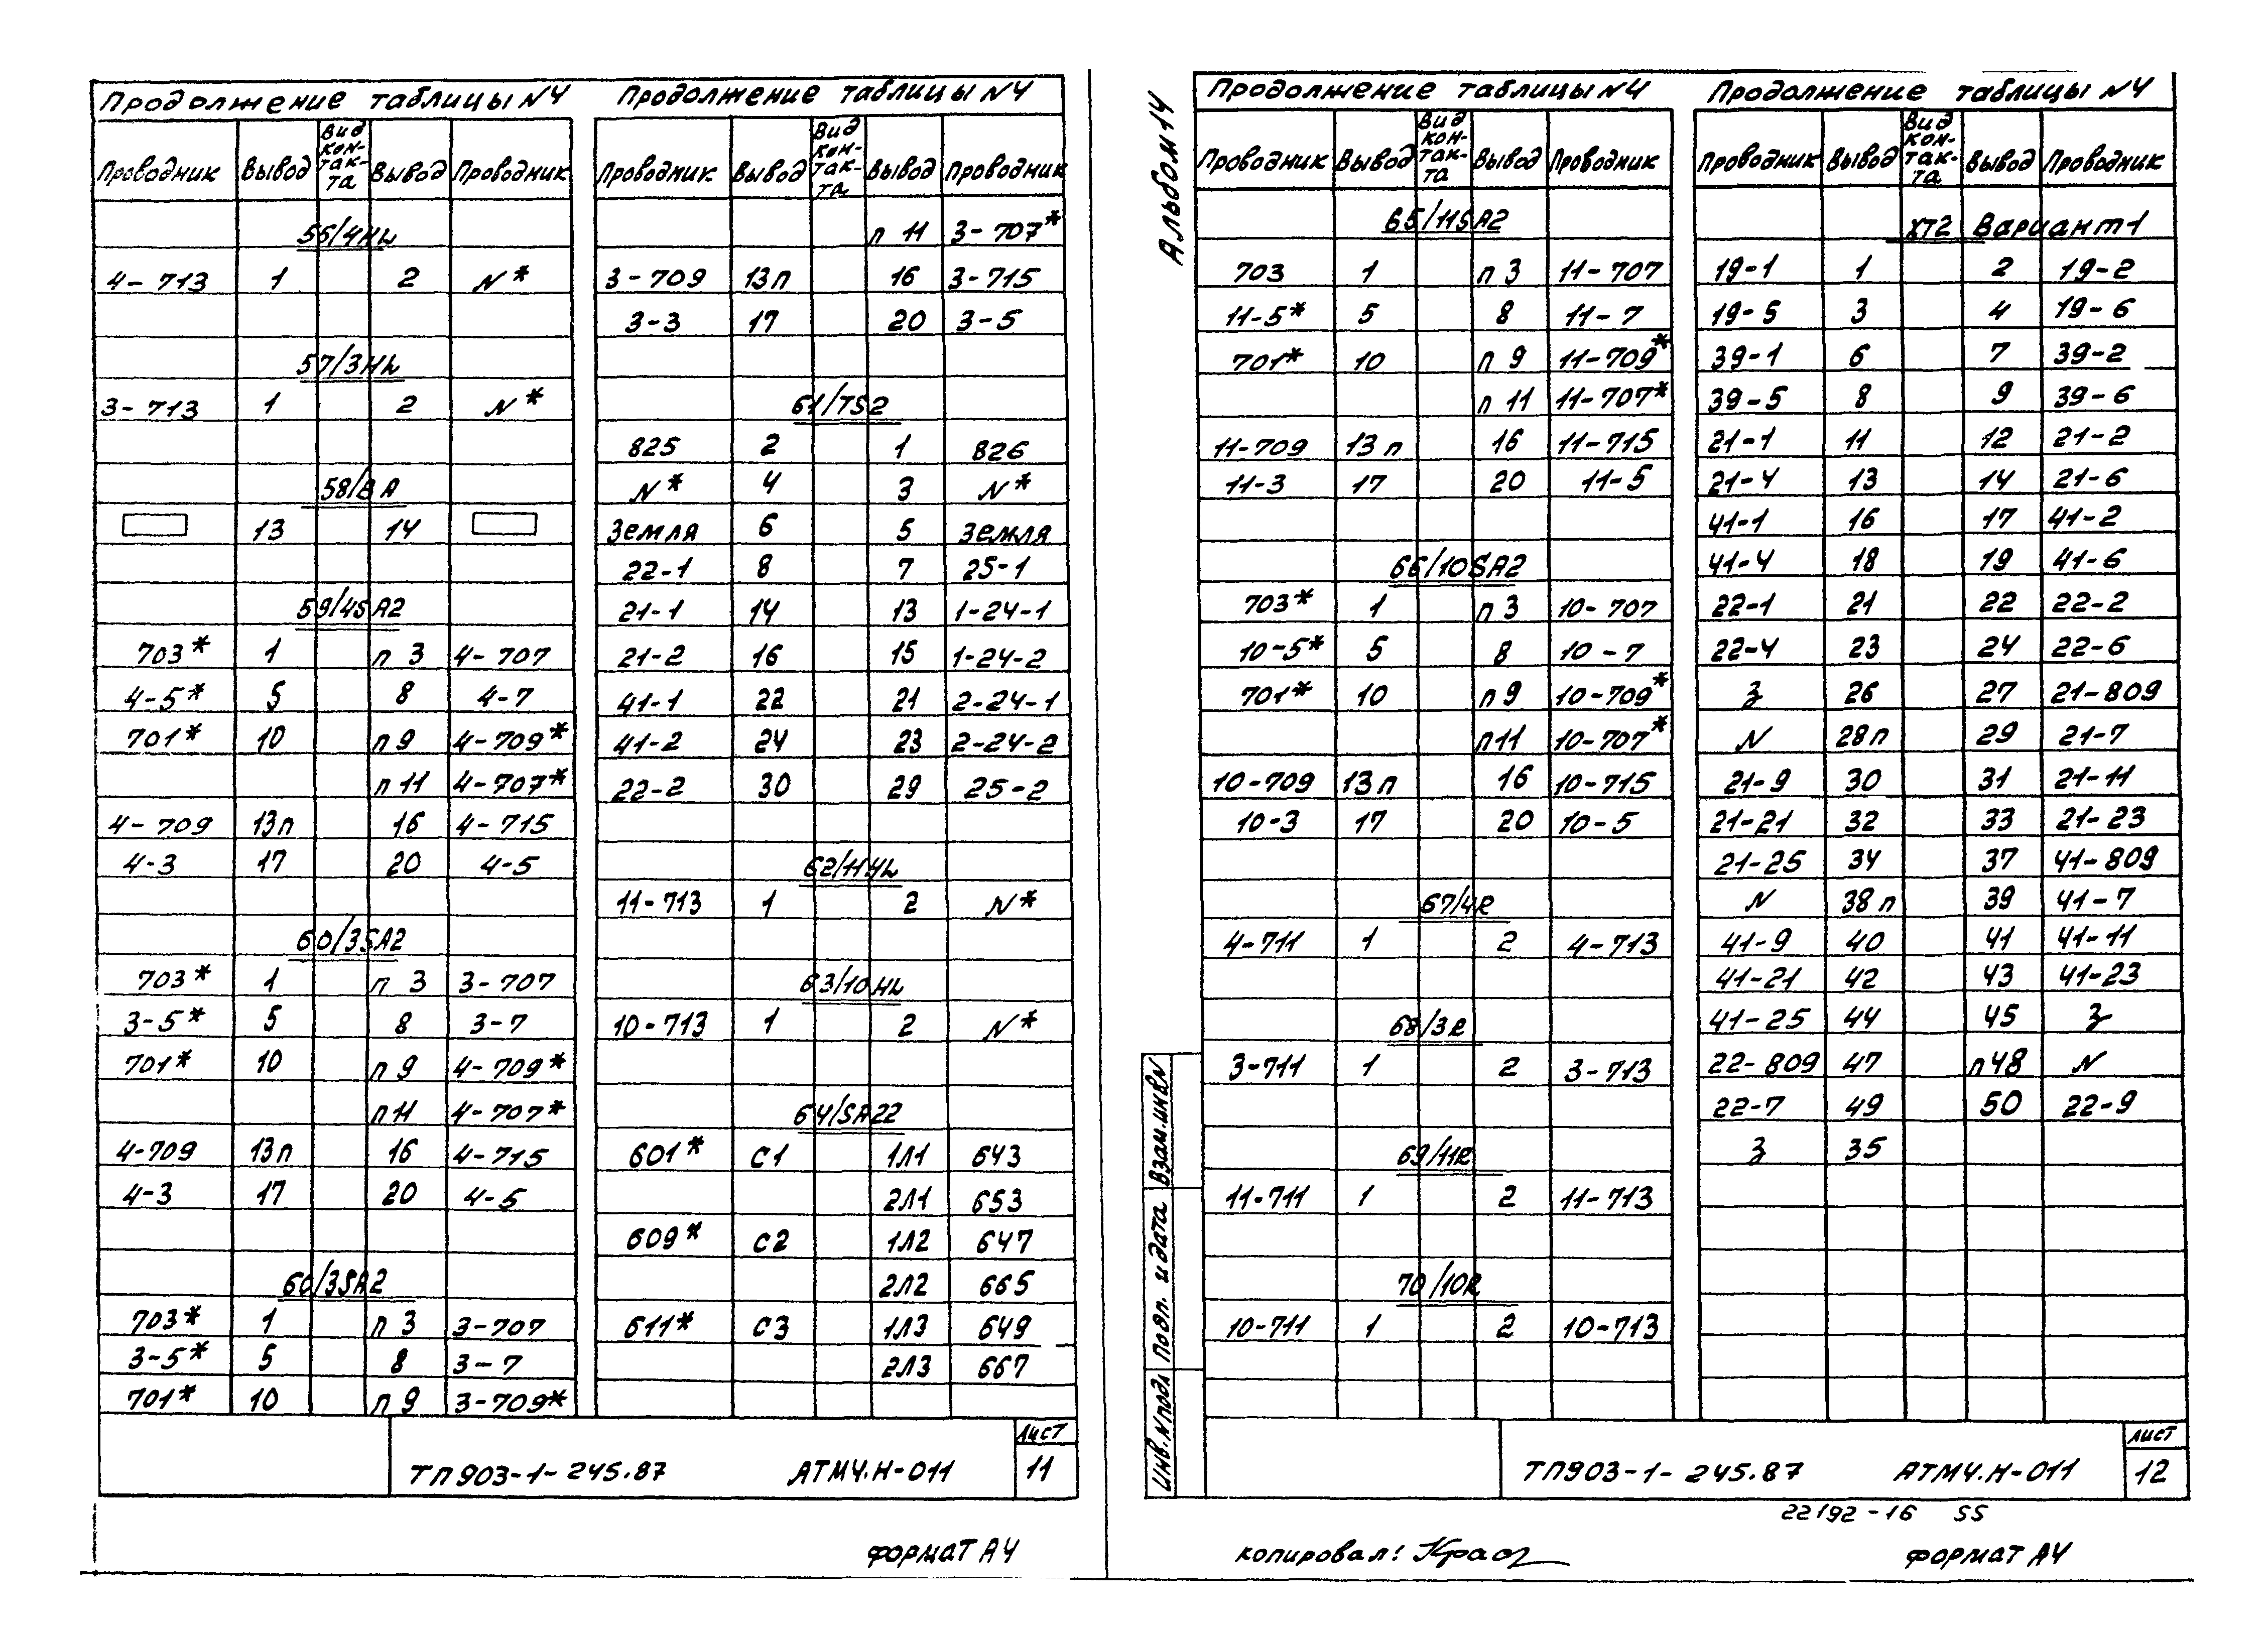 Продолжение таблицы N4
Проводник Вывод Вид кон-так-та Вывод Проводник
56/4HL
4-713 1 2 N*
57/3HL
3-713 1 2 N*
58/BA
13 14
59/4SA2
703* 1 п 3 4-707
4-5* 5 8 4-7
701* 10 п 9 4-709*
п 11 4-707*
4-709 13п 16 4-715
4-3 17 20 4-5
60/3SA2
703* 1 п 3 3-707
3-5* 5 8 3-7
701* 10 п 9 4-709*
п 11 4-707*
4-709 13п 16 4-715
4-3 17 20 4-5
60/3SA2
703* 1 п 3 3-707
3-5* 5 8 3-7
701* 10 п 9 3-709*
Продолжение таблицы N4
Проводник Вывод Вид кон-так-та Вывод Проводник
п 11 3-707*
3-709 13п 16 3-715
3-3 17 20 3-5
61/TS2
825 2 1 826
N* 4 3 N*
Земля 6 5 Земля
22-1 8 7 25-1
21-1 14 13 1-24-1
21-2 16 15 1-24-2
41-1 22 21 2-24-1
41-2 24 23 2-24-2
22-2 30 29 25-2
62/11HL
11-713 1 2 N*
63/10HL
10-713 1 2 N*
64/SA22
601* С1 1Л1 643
2Л1 653
609* С2 1Л2 647
2Л2 665
611* С3 1Л3 649
2Л3 667
ТП903-1-245.87 АТМ4.Н-011
лист
11
ФОРМАТ А4
Альбом 14
Продолжение таблицы N4
Проводник Вывод Вид кон-так-та Вывод Проводник
65/11SA2
703 1 п 3 11-707
11-5* 5 8 11-7
701* 10 п 9 11-709*
п 11 11-707*
11-709 13п 16 11-715
11-3 17 20 11-5
66/10SA2
703* 1 п 3 10-707
10-5* 5 8 10-7
701* 10 п 9 10-709*
п11 10-707*
10-709 13п 16 10-715
10-3 17 20 10-5
67/4R
4-711 1 2 4-713
68/3R
3-711 1 2 3-713
69/11R
11-711 1 2 11-713
70/10R
10-711 1 2 10-713
Продолжение таблицы N4
Проводник Вывод Вид кон-так-та Вывод Проводник
XT2 Вариант 1
19-1 1 2 19-2
19-5 3 4 19-6
39-1 6 7 39-2
39-5 8 9 39-6
21-1 11 12 21-2
21-4 13 14 21-6
41-1 16 17 41-2
41-4 18 19 41-6
22-1 21 22 22-2
22-4 23 24 22-6
З 26 27 21-809
N 28п 29 21-7
21-9 30 31 21-11
21-21 32 33 21-23
21-25 34 37 41-809
N 38п 39 41-7
41-9 40 41 41-11
41-21 42 43 41-23
41-25 44 45 З
22-809 47 п48 N
22-7 49 50 22-9
З 35
Инв.Nподл Подп. и дата Взам.инвN
ТП903-1-245.87 АТМ4.Н-011
лист
12
22192-16 55
копировал:
ФОРМАТ А4